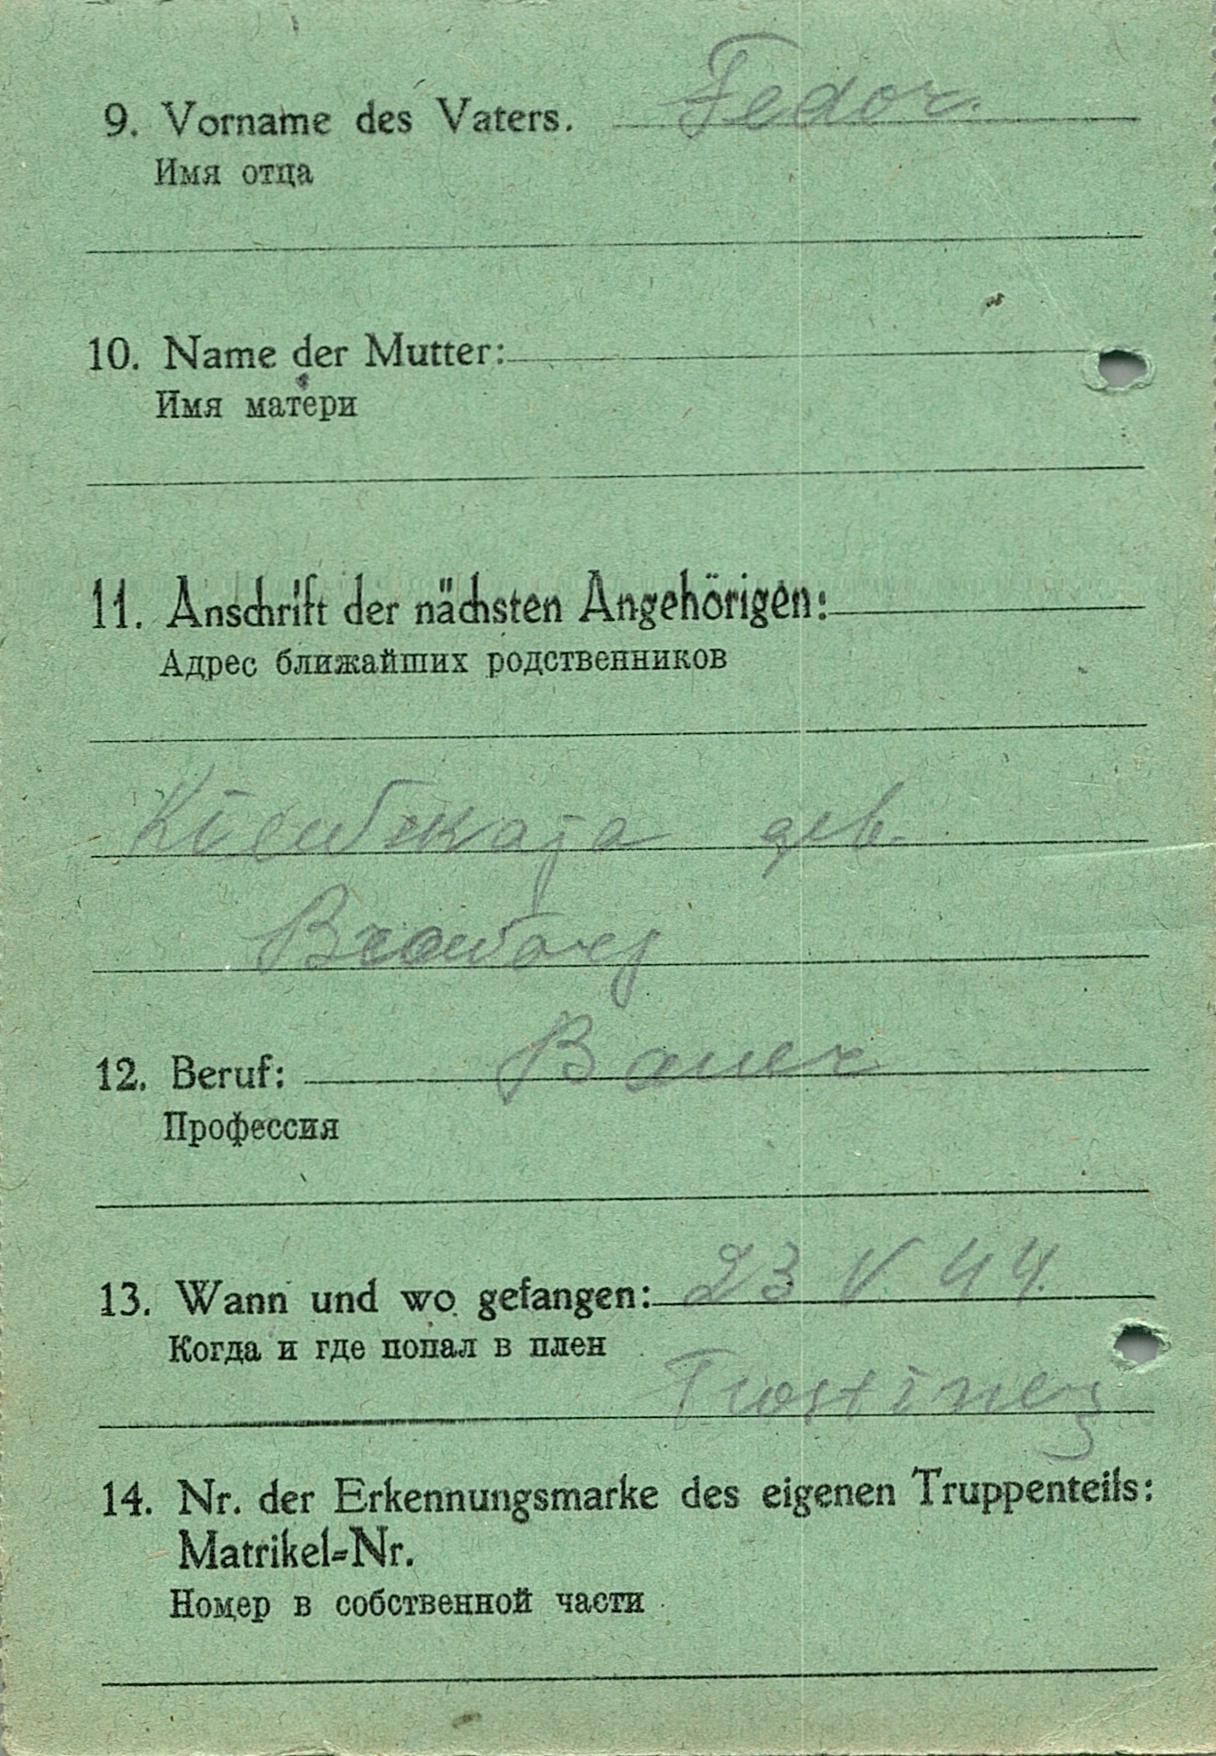 9. Vorname des Vaters. Fedor.
Имя отца
10. Name der Mutter:
Имя матери
11. Anschrift der nächsten Angehörigen:
Адрес ближайших родственников
Kiewskaja geb.
12. Beruf: Bauer
Профессия
13. Wann und wo gefangen: 23 V. 44.
Когда и где попал в плен
Trostinez
14. Nr. der Erkennungsmarke des eigenen Truppenteils:
Matrikel-Nr.
Номер в собственной части